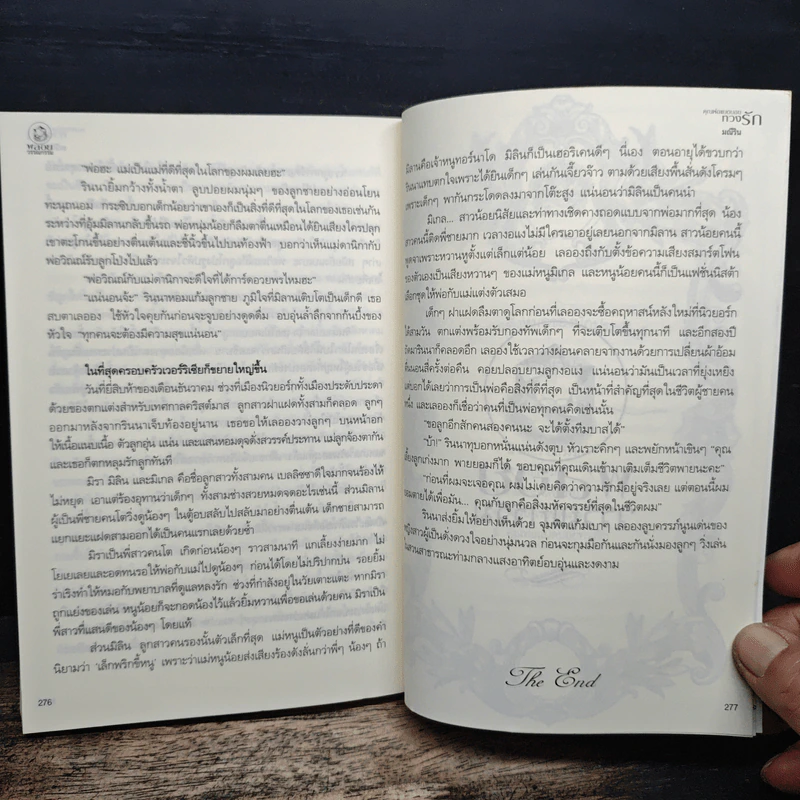 "พ่อฮะ แม่เป็นแม่ที่ดีที่สุดในโลกของผมเลยฮะ"
รินนายิ้มกว้างทั้งน้ำตา ลูบปอยผมนุ่มๆ ของลูกชายอย่างอ่อนโยน
ทะนุถนอม กระซิบบอกเด็กน้อยว่าเขาเองก็เป็นสิ่งที่ดีที่สุดในโลกของเธอเช่นกัน
ระหว่างที่อุ้มมิลานกลับขึ้นรถ พ่อหนุ่มน้อยก็ลืมตาตื่นเหมือนได้ยินเสียงใครปลุก
เขาตะโกนขึ้นอย่างตื่นเต้นและชี้นิ้วขึ้นไปบนท้องฟ้า บอกว่าเห็นแม่ดานิกากับ
พ่อวิณณ์รับลูกโป่งไปแล้ว
"พ่อวิณณ์กับแม่ดานิกาจะดีใจที่ได้การ์ดอวยพรไหมฮะ"
"แน่นอนจ้ะ" รินนาหอมแก้มลูกชาย ภูมิใจที่มิลานเติบโตเป็นเด็กดี เธอ
สบตาเลออง ใช้หัวใจคุยกันก่อนจะจูบอย่างดูดดื่ม อบอุ่นล้ำลึกจากก้นบึ้งของ
หัวใจ "ทุกคนจะต้องมีความสุขแน่นอน"
ในที่สุดครอบครัวเวอร์ริเซียก็ขยายใหญ่ขึ้น
วันที่ยี่สิบห้าของเดือนธันวาคม ช่วงที่เมืองนิวยอร์กทั้งเมืองประดับประดา
ด้วยของตกแต่งสำหรับเทศกาลคริสต์มาส ลูกสาวฝาแฝดทั้งสามก็คลอด ลูกๆ
ออกมาหลังจากรินนาเจ็บท้องอยู่นาน เธอขอให้เลอองวางลูกๆ บนหน้าอก
ให้เนื้อแนบเนื้อ ตัวลูกอุ่น แน่น และแสนหอมดุจดั่งสวรรค์ประทาน แม่ลูกจ้องตากัน
และเธอก็ตกหลุมรักลูกทันที
มิรา มิลิน และมิเกล คือชื่อลูกสาวทั้งสามคน เบลลิซซาดีใจมากจนร้องไห้
ไม่หยุด เอาแต่ร้องอุทานว่าเด็กๆ ทั้งสามช่างสวยหมดจดอะไรเช่นนี้ ส่วนมิลาน
ผู้เป็นพี่ชายคนโตวิ่งดูน้องๆ ในตู้อบสลับไปสลับมาอย่างตื่นเต้น เด็กชายสามารถ
แยกแยะแฝดสามออกได้เป็นคนแรกเลยด้วยซ้ำ
มิราเป็นพี่สาวคนโต เกิดก่อนน้องๆ ราวสามนาที แกเลี้ยงง่ายมาก ไม่
โยเยเลยและอดทนรอให้พ่อกับแม่ไปดูน้องๆ ก่อนได้โดยไม่ปริปากบ่น รอยยิ้ม
ร่าเริงทำให้หมอกับพยาบาลที่ดูแลหลงรัก ช่วงที่กำลังอยู่ในวัยเตาะแตะ หากมิรา
ถูกแย่งของเล่น หนูน้อยก็จะกอดน้องไว้แล้วยิ้มหวานเพื่อขอเล่นด้วยคน มิราเป็น
พี่สาวที่แสนดีของน้องๆ โดยแท้
ส่วนมิลิน ลูกสาวคนรองนั้นตัวเล็กที่สุด แม่หนูเป็นตัวอย่างที่ดีของคำ
นิยามว่า 'เล็กพริกขี้หนู' เพราะว่าแม่หนูน้อยส่งเสียงร้องดังลั่นกว่าพี่ๆ น้องๆ ถ้า
276
ทวงรัก
มณีริน
มิลานคือเจ้าหนูทอร์นาโด มิลินก็เป็นเฮอริเคนดีๆ นี่เอง ตอนอายุได้ขวบกว่า
รินนาแทบตกใจเพราะได้ยินเด็กๆ เล่นกันเจี๊ยวจ๊าว ตามด้วยเสียงพื้นสั่นดังโครมๆ
เพราะเด็กๆ พากันกระโดดลงมาจากโต๊ะสูง แน่นอนว่ามิลินเป็นคนนำ
มิเกล... สาวน้อยนิสัยและท่าทางเชิดคางถอดแบบจากพ่อมากที่สุด น้อง
สาวคนนี้ติดพี่ชายมาก เวลางอแงไม่มีใครเอาอยู่เลยนอกจากมิลาน สาวน้อยคนนี้
พูดจาเพราะหวานหูตั้งแต่เล็กแต่น้อย เลอองถึงกับตั้งข้อความเสียงสมาร์ตโฟน
ของตัวเองเป็นเสียงหวานๆ ของแม่หนูมิเกล และหนูน้อยคนนี้ก็เป็นแฟชั่นนิสต้า
เลือกชุดให้พ่อกับแม่แต่งตัวเสมอ
เด็กๆ ฝาแฝดลืมตาดูโลกก่อนที่เลอองจะซื้อคฤหาสน์หลังใหม่ที่นิวยอร์ก
ได้สามวัน ตกแต่งพร้อมรับกองทัพเด็กๆ ที่จะเติบโตขึ้นทุกนาที และอีกสองปี
ถัดมารินนาก็คลอดอีก เลอองใช้เวลาว่างผ่อนคลายจากงานด้วยการเปลี่ยนผ้าอ้อม
ตื่นนอนสี่ครั้งต่อคืน คอยปลอบยามลูกงอแง แน่นอนว่ามันเป็นเวลาที่ยุ่งเหยิง
แต่บอกได้เลยว่าการเป็นพ่อคือสิ่งที่ดีที่สุด เป็นหน้าที่สำคัญที่สุดในชีวิตผู้ชายคน
หนึ่ง และเลอองก็เชื่อว่าคนที่เป็นพ่อทุกคนคิดเช่นนั้น
"ขอลูกอีกสักคนสองคนนะ จะได้ตั้งทีมบาสได้"
"บ้า!" รินนาทุบอกหนั่นแน่นดังตุบ หัวเราะคิกๆ และพยักหน้าเชินๆ "คุณ
เลี้ยงลูกเก่งมาก พายยอมก็ได้ ขอบคุณที่คุณเดินเข้ามาเติมเต็มชีวิตพายนะคะ"
"ก่อนที่ผมจะเจอคุณ ผมไม่เคยคิดว่าความรักมีอยู่จริงเลย แต่ตอนนี้ผม
ยอมตายได้เพื่อมัน... คุณกับลูกคือสิ่งมหัศจรรย์ที่สุดในชีวิตผม"
รินนาส่งยิ้มให้อย่างเห็นด้วย จุมพิตแก้มเบาๆ เลอองลูบครรภ์นูนเด่นของ
หญิงสาวผู้เป็นดั่งดวงใจอย่างนุ่มนวล ก่อนจะกุมมือกันและกันนั่งมองลูกๆ วิ่งเล่น
ในสวนสาธารณะท่ามกลางแสงอาทิตย์อบอุ่นและงดงาม
The End
277